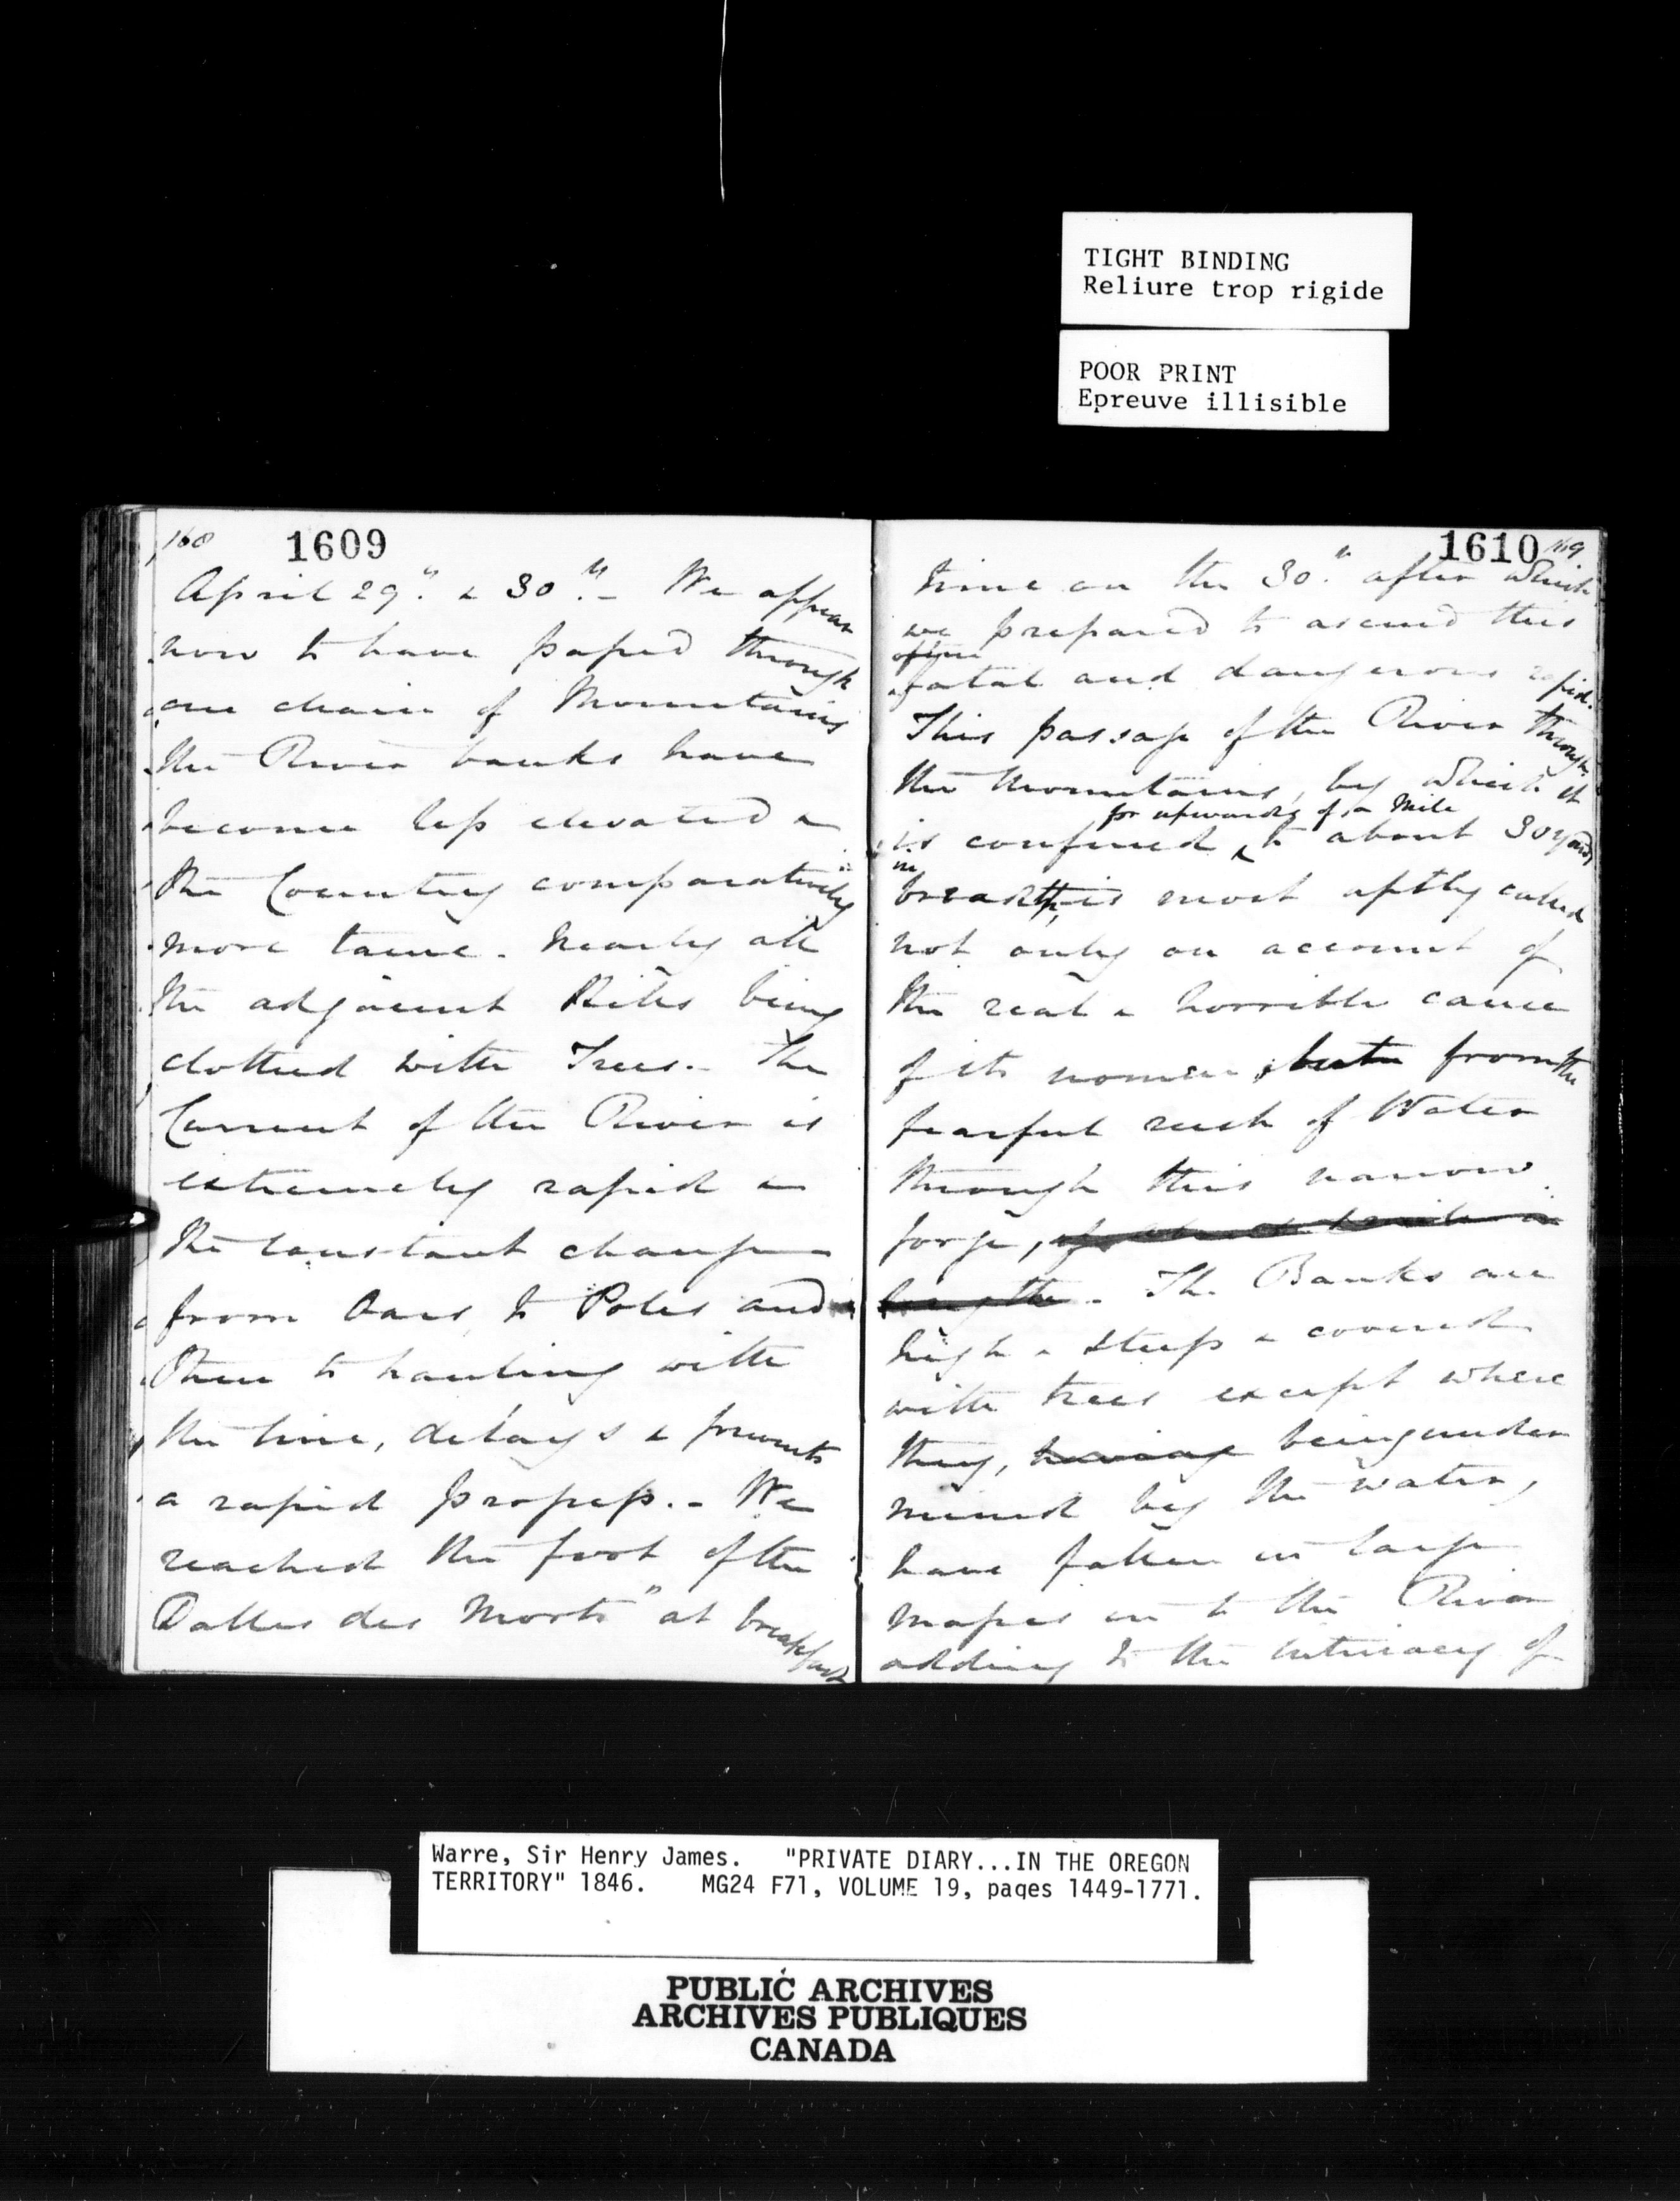 TIGHT BINDING
Reliure trop rigide
POOR PRINT
Epreuve illisible
168 1609
April 29th & 30th - We appear
now to have passed through
one chain of Mountains
the River banks have
become less elevated &
the Country comparatively
more tame. nearly all
the adjacent Hills being
clothed with Trees. - The
Current of the River is
extremely rapid &
the constant change
from Oars to Poles and
then to hauling with
the line, delays & prevents
a rapid progress. - We
reached the foot of the
Dalles des Morts" at breakfast
1610 169
time on the 30th after which
we prepared to ascend this
often
fatal and dangerous rapid.
This passage of the River through
the Mountains, by which it
for upwards of a Mile
is confined to about 30 yards
in
breadth, is most aptly called
not only on account of
the real & horrible cause
of its name, but from the
fearful rush of Water
through this narrow
gorge,
length - The Banks are
high & steep & covered
with trees except where
they, having being under
mined by the water,
have fallen in large
masses in to the River
adding to the intricacy of
Warre, Sir Henry James. "PRIVATE DIARY...IN THE OREGON
TERRITORY" 1846. MG24 F71, VOLUME 19, pages 1449-1771.
PUBLIC ARCHIVES
ARCHIVES PUBLIQUES
CANADA